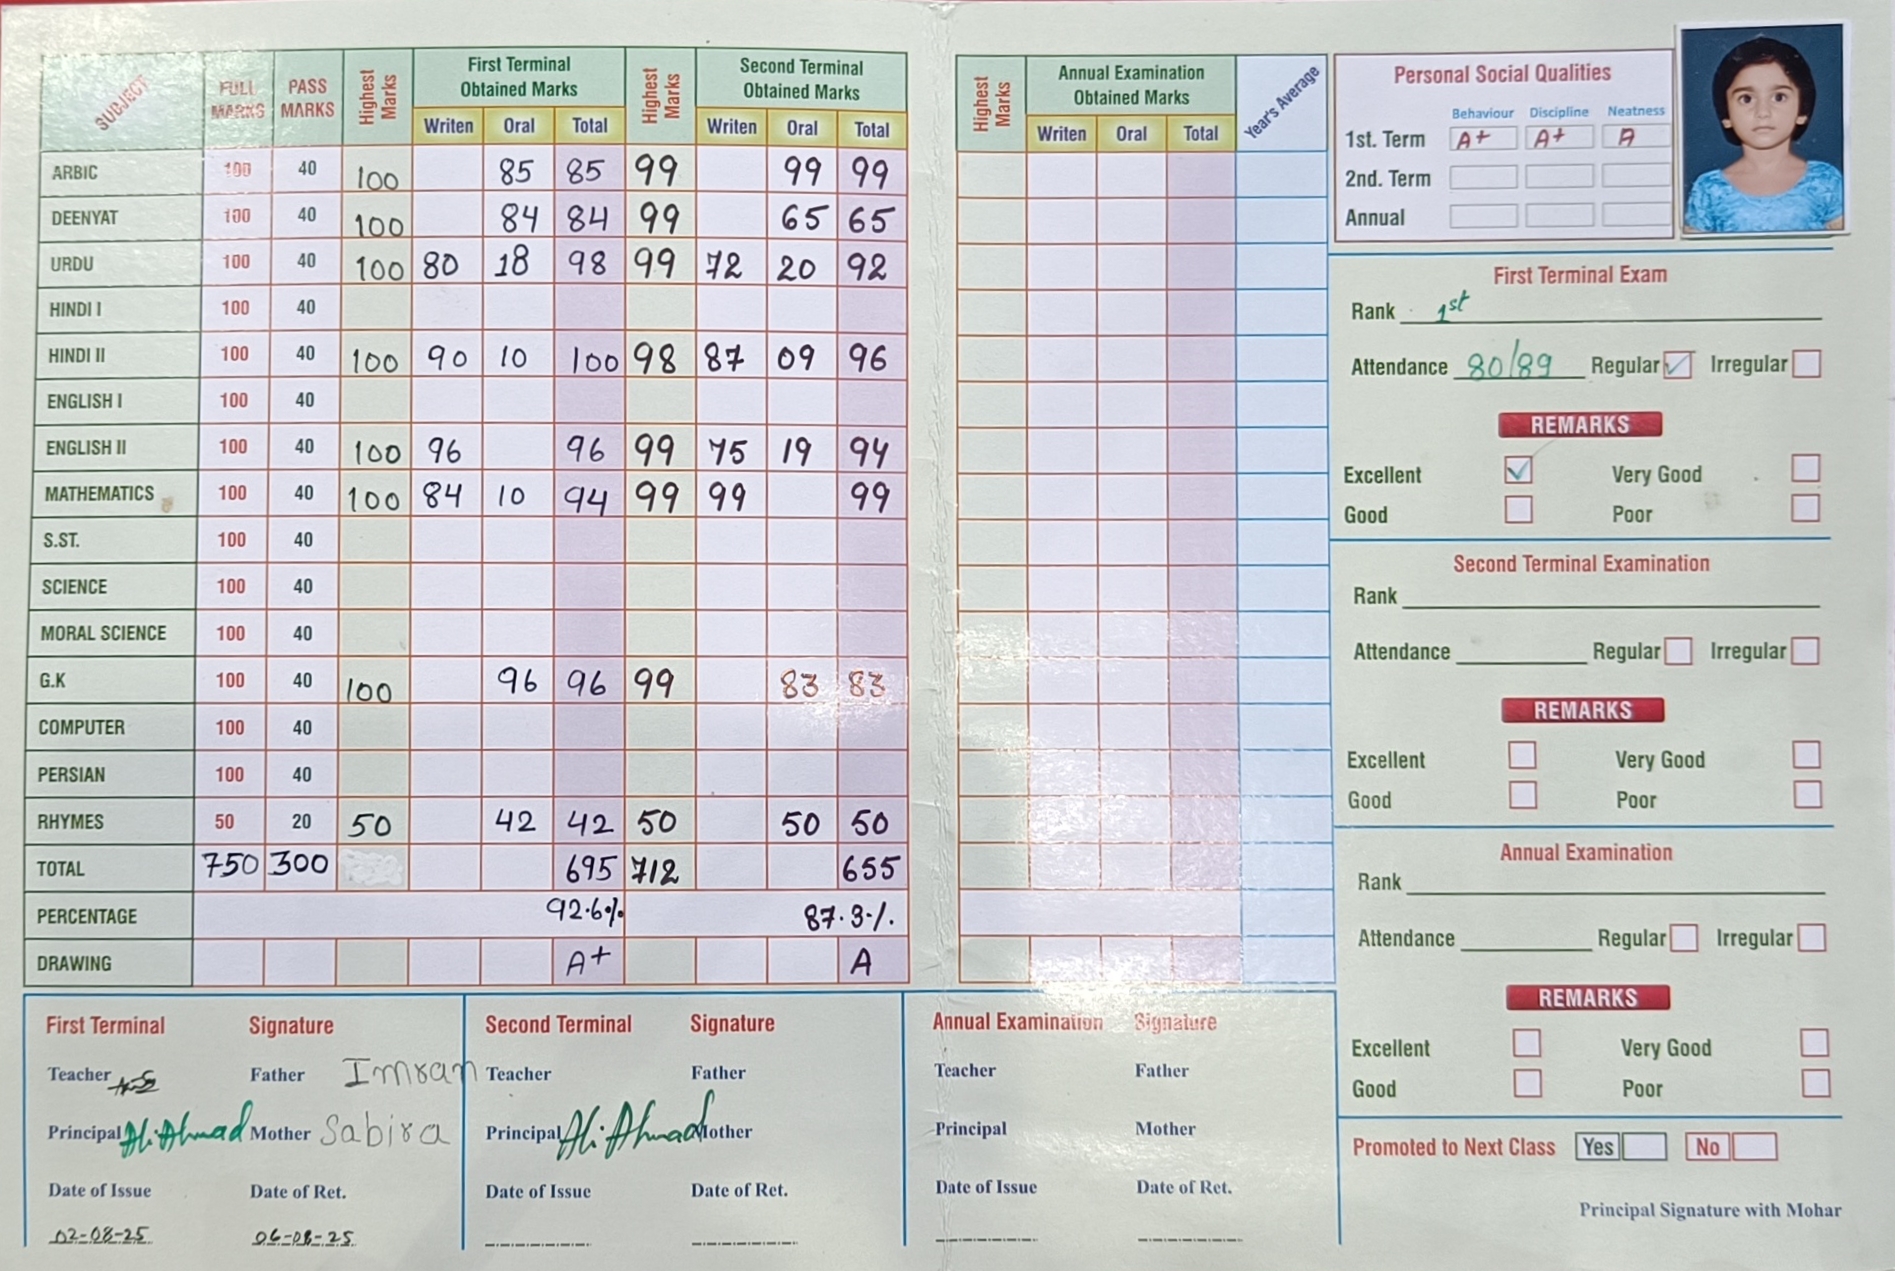 SUBJECT FULL MARKS PASS MARKS Highest Marks First Terminal Obtained Marks Highest Marks Second Terminal Obtained Marks
Writen Oral Total Writen Oral Total
ARBIC 100 40 100 85 85 99 99 99
DEENYAT 100 40 100 84 84 99 65 65
URDU 100 40 100 80 18 98 99 72 20 92
HINDI I 100 40
HINDI II 100 40 100 90 10 100 98 87 09 96
ENGLISH I 100 40
ENGLISH II 100 40 100 96 96 99 75 19 94
MATHEMATICS 100 40 100 84 10 94 99 99 99
S.ST. 100 40
SCIENCE 100 40
MORAL SCIENCE 100 40
G.K 100 40 100 96 96 99 83 83
COMPUTER 100 40
PERSIAN 100 40
RHYMES 50 20 50 42 42 50 50 50
TOTAL 750 300 695 712 655
PERCENTAGE 92.6% 87.3%
DRAWING A+ A
First Terminal Signature
Teacher Father Imran
Principal Ali Ahmad Mother Sabira
Date of Issue Date of Ret.
02-08-25 06-08-25
Second Terminal Signature
Teacher Father
Principal Ali Ahmad Mother
Date of Issue Date of Ret.
Highest Marks Annual Examination Obtained Marks Year's Average
Writen Oral Total
Annual Examination Signature
Teacher Father
Principal Mother
Date of Issue Date of Ret.
Personal Social Qualities
Behaviour Discipline Neatness
1st. Term A+ A+ A
2nd. Term
Annual
First Terminal Exam
Rank 1st
Attendance 80/89 Regular Irregular
REMARKS
Excellent Very Good
Good Poor
Second Terminal Examination
Rank
Attendance Regular Irregular
REMARKS
Excellent Very Good
Good Poor
Annual Examination
Rank
Attendance Regular Irregular
REMARKS
Excellent Very Good
Good Poor
Promoted to Next Class Yes No
Principal Signature with Mohar